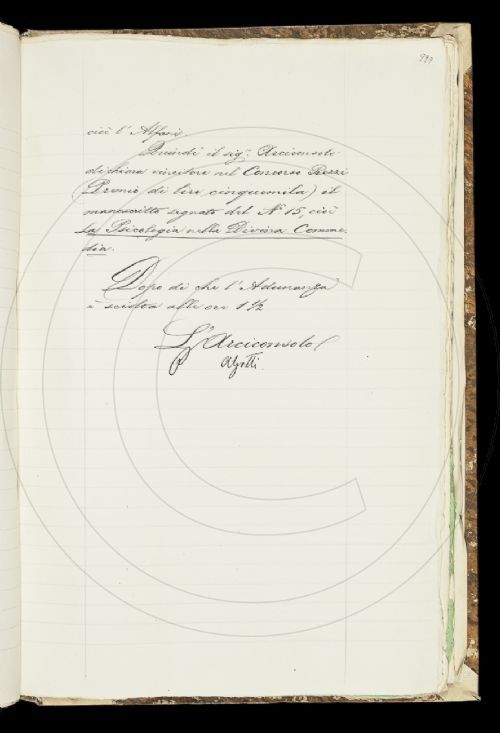 cioè l'Alfani.
Quindi il sig.r Arciconsolo
dichiara vincitore nel Concorso Rezzi
(Premio di lire cinquemila) il
manoscritto segnato del N.° 15, cioè
La Psicologia nella Divina Comme-
dia.
Dopo di che l'Adunanza
è sciolta alle ore 1 1/2
L'Arciconsolo